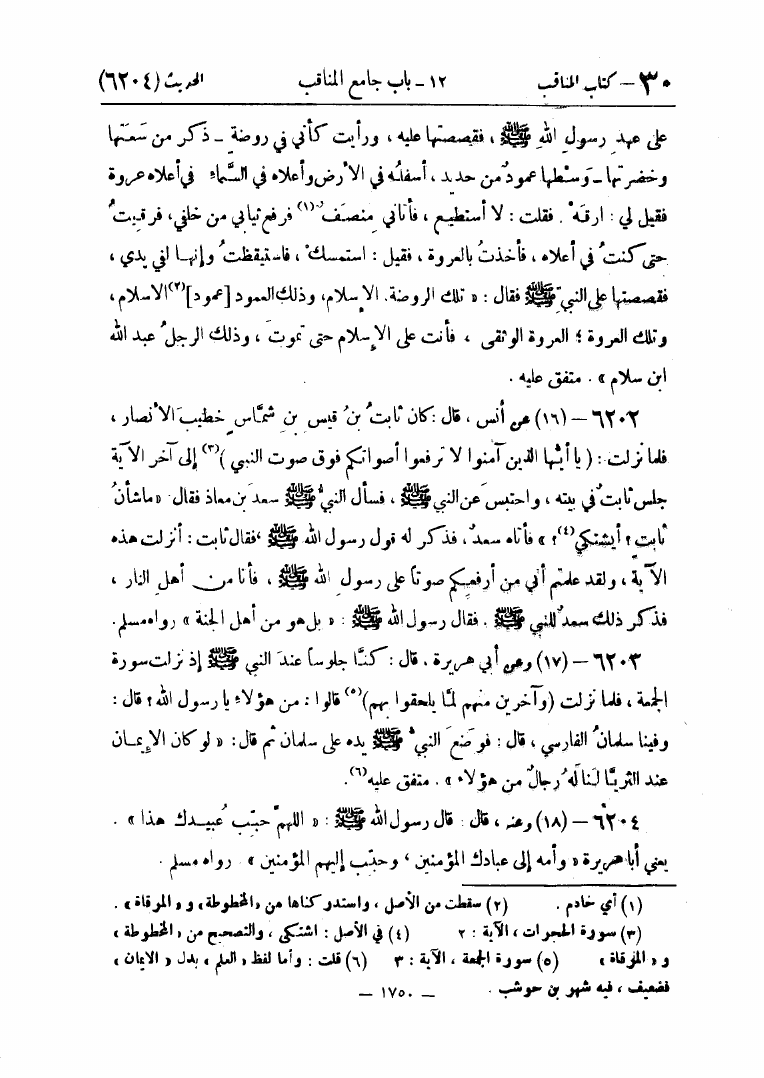 ٣٠ – كتاب المناقب ١٢ – باب جامع المناقب الحديث (٦٢٠٤)
على عهدِ رسولِ اللهِ ﷺ ، فقصصتها عليه ، ورأيت كأني في روضة – ذكر من سَعَتها
وخضرتها – وَسْطها عمودٌ من حديد ، أسفلُه في الأرض وأعلاه في السَّماء في أعلاه عروة
فقيل لي : ارقَهْ . فقلت : لا أستطيع ، فأتاني مِنصَفٌ (١) فرفع ثيابي من خلفي ، فرقِيتُ
حتى كنتُ في أعلاه ، فأخذتُ بالعروة ، فقيل : استمسكْ ، فاستيقظتُ وإنها لفي يدي ،
فقصصتها على النبيِّ ﷺ فقال : « تلك الروضة. الإسلام، وذلك العمود [عمود](٢) الاسلام ،
وتلك العروة ؛ العروة الوثقى ، فأنت على الإسلام حتى تموتَ ، وذلك الرجلُ عبد الله
ابن سلام » . متفق عليه .
٦٢٠٢ – (١٦) عن أنس ، قال : كان ثابتُ بنُ قيسِ بنِ شمَّاسٍ خطيبَ الأنصار ،
فلما نزلت : ( يا أيُّها الذين آمنوا لا ترفعوا أصواتكم فوق صوت النبي )(٣) إلى آخر الآية
جلس ثابتٌ في بيته ، واحتبسَ عن النبي ﷺ ، فسأل النبيُّ ﷺ سعدَ بن معاذ فقال « ما شأنُ
ثابت ؟ أيشتكي(٤) ؟ » فأتاه سعدٌ ، فذكر له قول رسول الله ﷺ ، فقال ثابت : أنزلت هذه
الآيةُ ، ولقد علمتم أني من أرفعِكم صوتاً على رسولِ الله ﷺ ، فأنا من أهلِ النار ،
فذكر ذلك سعدٌ للنبي ﷺ . فقال رسول الله ﷺ : « بل هو من أهل الجنة » رواه مسلم.
٦٢٠٣ – (١٧) وعن أبي هريرة ، قال : كنَّا جلوساً عندَ النبي ﷺ إذ نزلت سورة
الجمعة ، فلما نزلت (وآخرين منهم لمَّا يلحقوا بهم)(٥) قالوا : من هؤلاءِ يا رسول الله ؟ قال :
وفينا سلمانُ الفارسي ، قال : فوضَعَ النبيُّ ﷺ يده على سلمان ثم قال : « لو كان الإيمان
عند الثريَّا لنالَهُ رجالٌ من هؤلاء » . متفق عليه(٦).
٦٢٠٤ – (١٨) وعنه ، قال : قال رسول الله ﷺ : « اللهمَّ حبِّب عُبيدك هذا » .
يعني أبا هريرة « وأمه إلى عبادك المؤمنين ، وحبِّب إليهم المؤمنين » . رواه مسلم .
(١) أي خادم . (٢) سقطت من الأصل ، واستدركناها من «المخطوطة» و « المرقاة » .
(٣) سورة الحجرات ، الآية : ٢ (٤) في الأصل : اشتكى ، والتصحيح من « المخطوطة »
و « المرقاة » (٥) سورة الجمعة ، الآية : ٣ (٦) قلت : وأما لفظ « العلم » بدل « الايمان »
فضعيف ، فيه شهر بن حوشب .
– ١٧٥٠ –